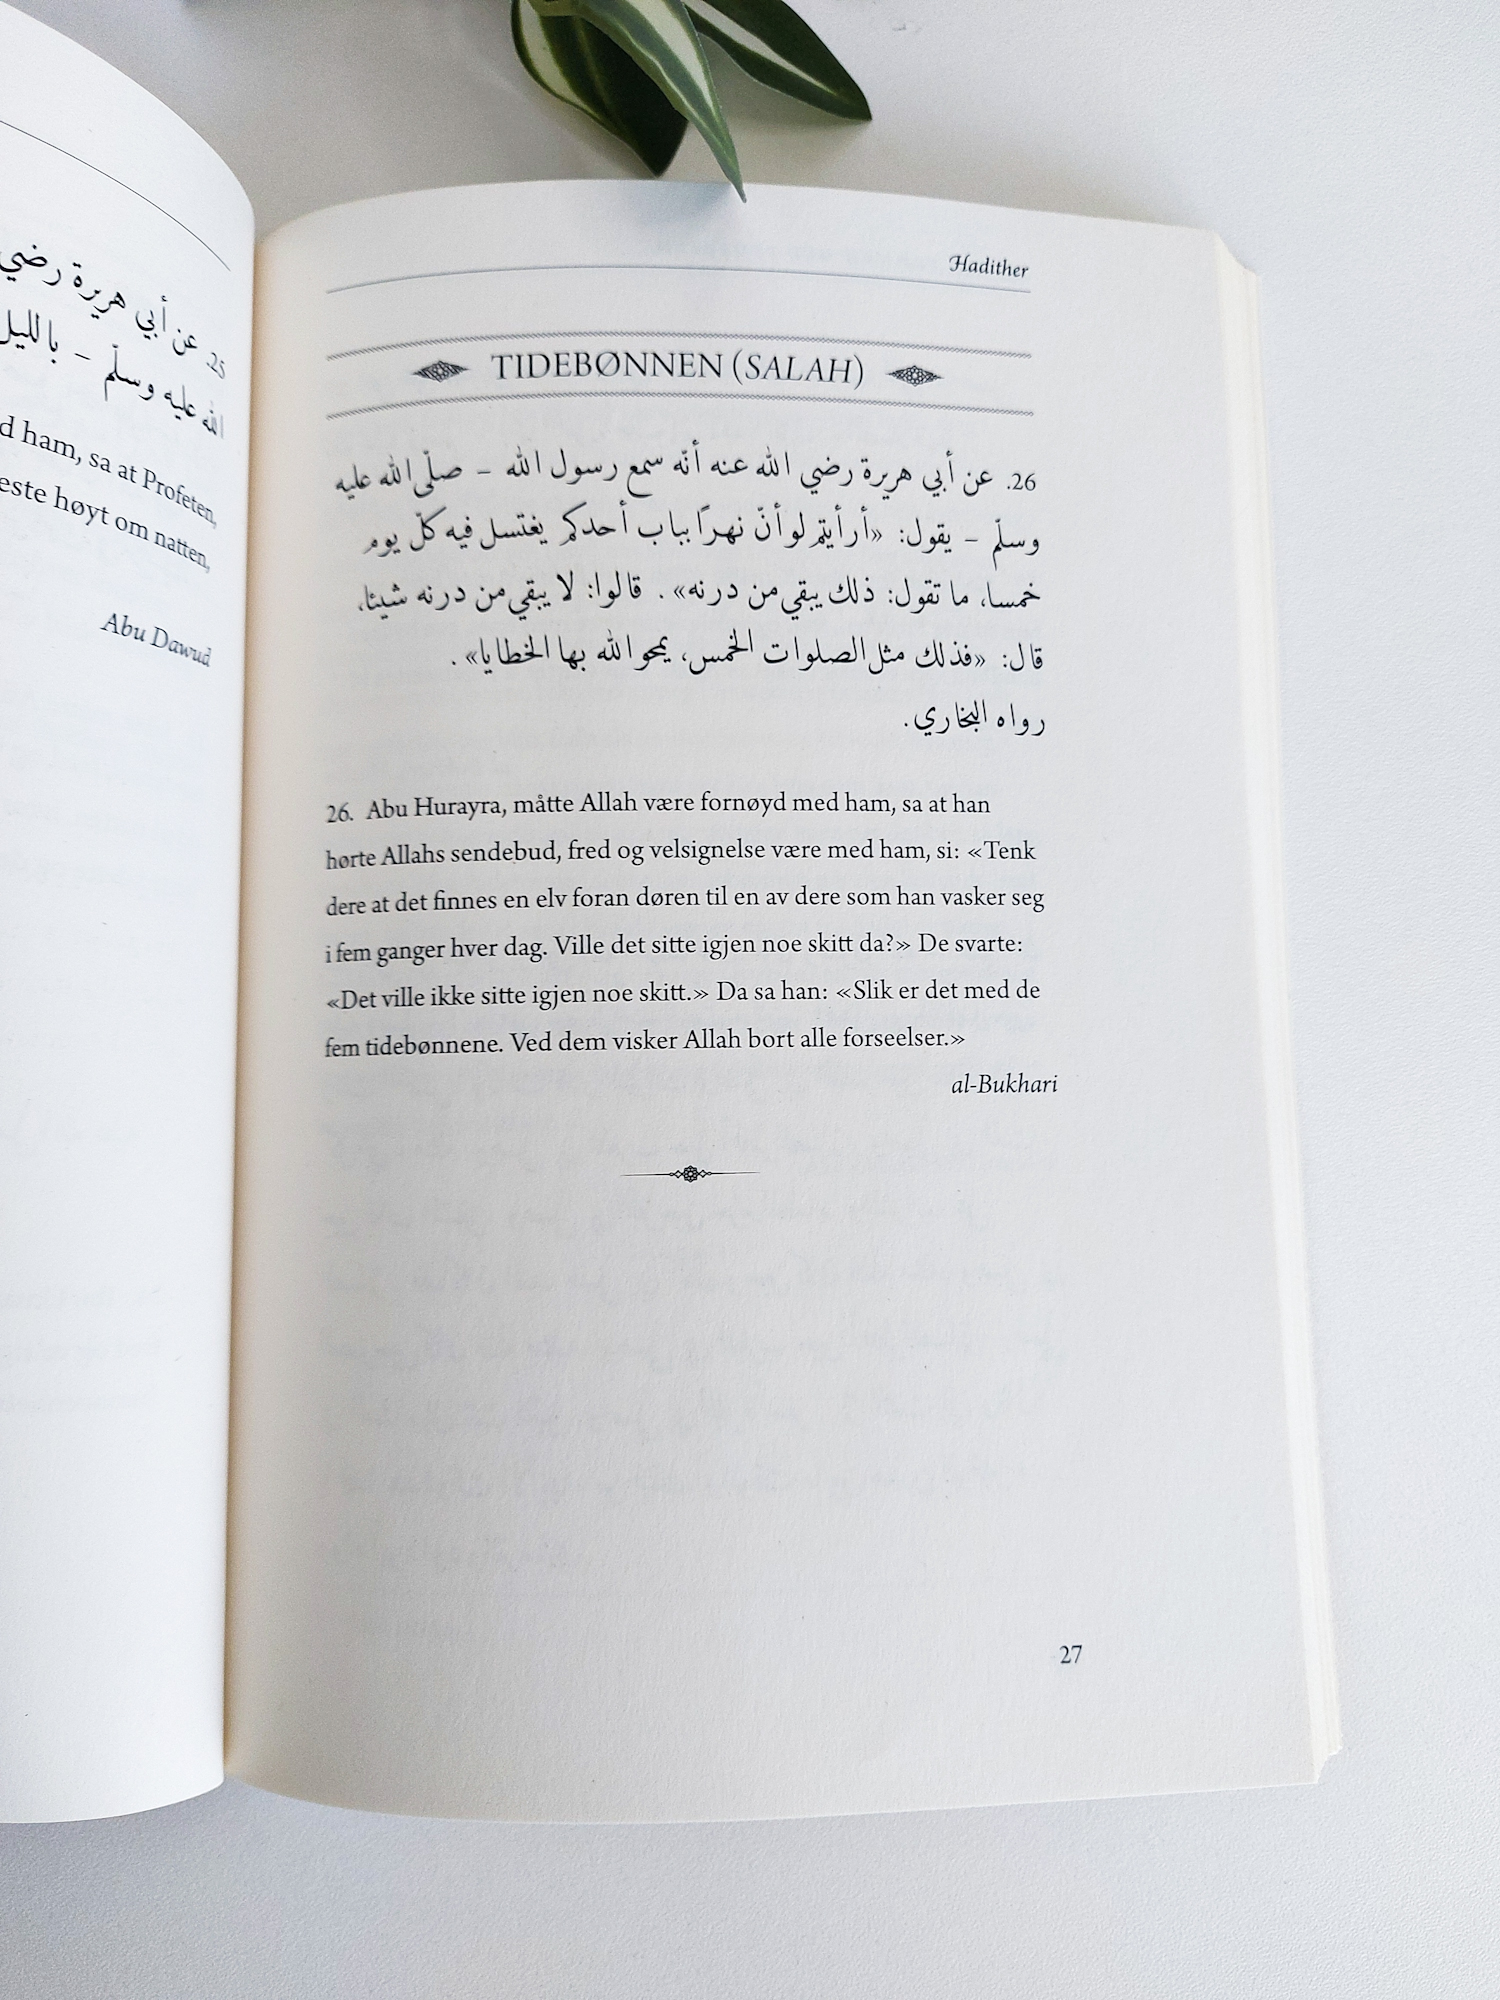 25. عن أبي هريرة رضي
الله عليه وسلّم – بالليل
d ham, sa at Profeten,
este høyt om natten,
Abu Dawud
Hadither
TIDEBØNNEN (SALAH)
26. عن أبي هريرة رضي الله عنه أنّه سمع رسول الله – صلّى الله عليه
وسلّم – يقول: «أرأيتم لو أنّ نهرًا بباب أحدكم يغتسل فيه كلّ يوم
خمسا، ما تقول: ذلك يبقي من درنه» . قالوا: لا يبقي من درنه شيئا،
قال: «فذلك مثل الصلوات الخمس، يمحو الله بها الخطايا» .
رواه البخاري.
26. Abu Hurayra, måtte Allah være fornøyd med ham, sa at han
hørte Allahs sendebud, fred og velsignelse være med ham, si: «Tenk
dere at det finnes en elv foran døren til en av dere som han vasker seg
i fem ganger hver dag. Ville det sitte igjen noe skitt da?» De svarte:
«Det ville ikke sitte igjen noe skitt.» Da sa han: «Slik er det med de
fem tidebønnene. Ved dem visker Allah bort alle forseelser.»
al-Bukhari
27